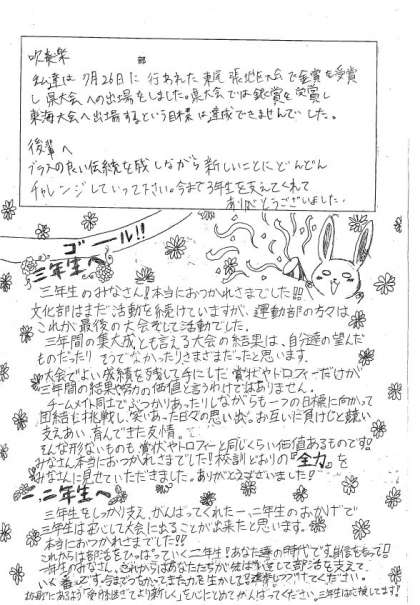 吹奏楽部
私達は7月26日に行われた東尾張地区大会で金賞を受賞
し県大会への出場をしました。県大会では銀賞を受賞し
東海大会へ出場するという目標は達成できませんでした。
後輩へ
ブラスの良い伝統を残しながら新しいことにどんどん
チャレンジしていって下さい。今まで3年生を支えてくれて
ありがとうございました。
ゴール!!
三年生へ
三年生のみなさん!本当におつかれさまでした!!
文化部はまだ活動を続けていますが、運動部の方々は
これが最後の大会そして活動でした。
三年間の集大成とも言える大会の結果は、自分達の望んだ
ものだったり そうでなかったりさまざまだったと思います。
大会でよい成績を残して手にした賞状やトロフィーだけが
三年間の結果や努力の価値と言うわけではありません。
チームメイト同士でぶつかりあったりしながらも一つの目標に向かって
団結し挑戦し、笑いあった日々の思い出。お互いに負けじと競い
支えあい育んできた友情。
そんな形ないものも賞状やトロフィーと同じくらい価値あるものです!!
みなさん本当におつかれさまでした!校訓どおりの『全力』を
みなさんに見せていただきました。ありがとうございました!
一、二年生へ
三年生をしっかり支え、がんばってくれた一、二年生のおかげで
三年生は安心して大会に出ることが出来たと思います。
本当におつかれさまでした!!
これからは部活をひっぱっていく二年生!あなた達の時代です。自信をもって!
一年生のみなさん、これからはあなたたちが